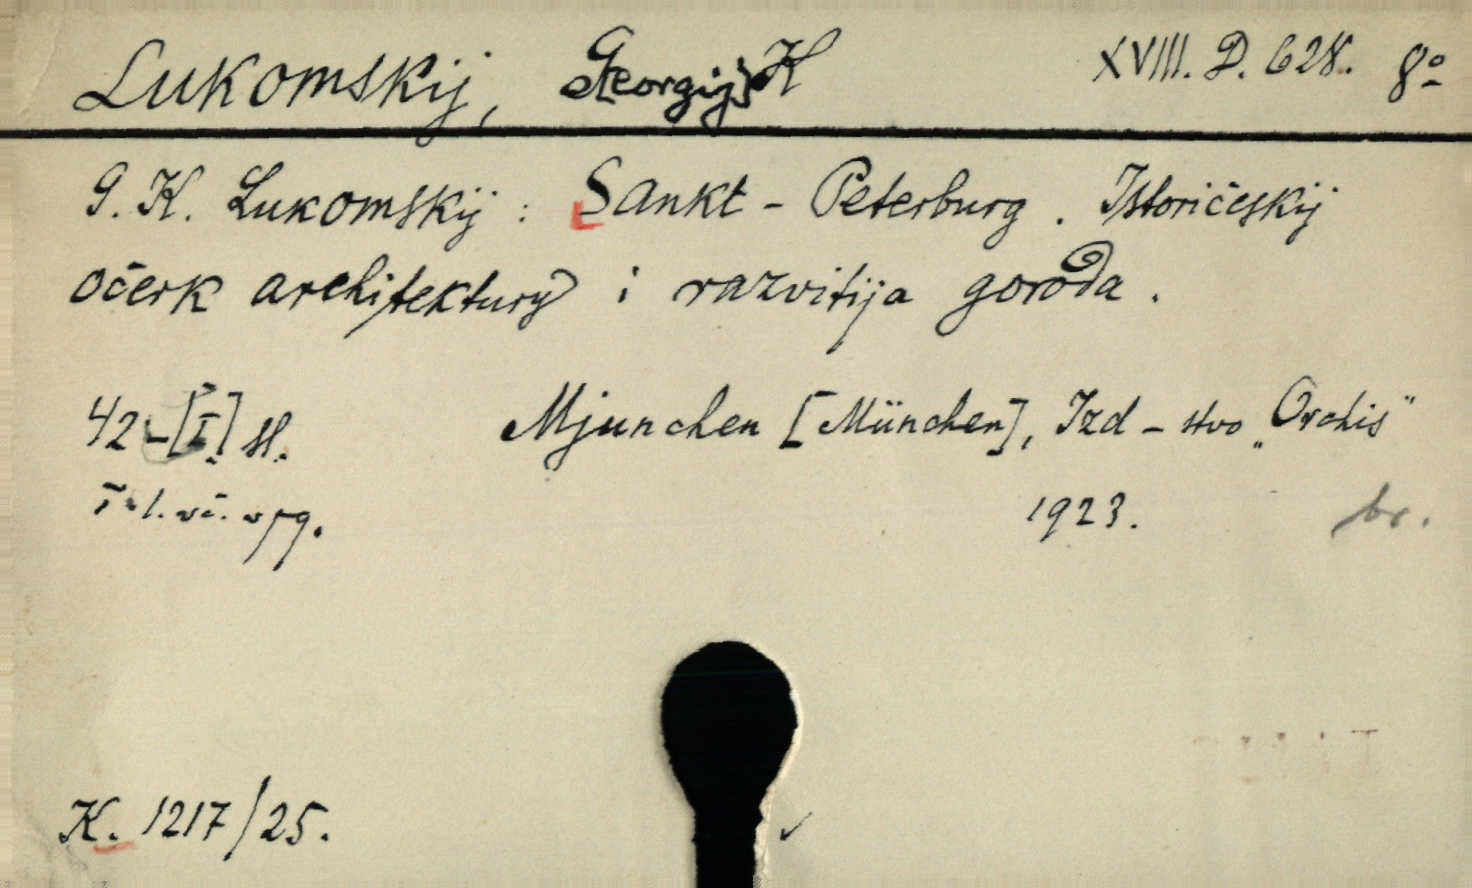 Lukomskij, Georgij K XVIII. D. 628. 8º
G. K. Lukomskij: Sankt-Peterburg. Istoričeskij
očerk architektury i razvitija goroda.
42-[I] sl. Mjunchen [München], Izd-stvo „Orchis"
1923. br.
K. 1217/25.